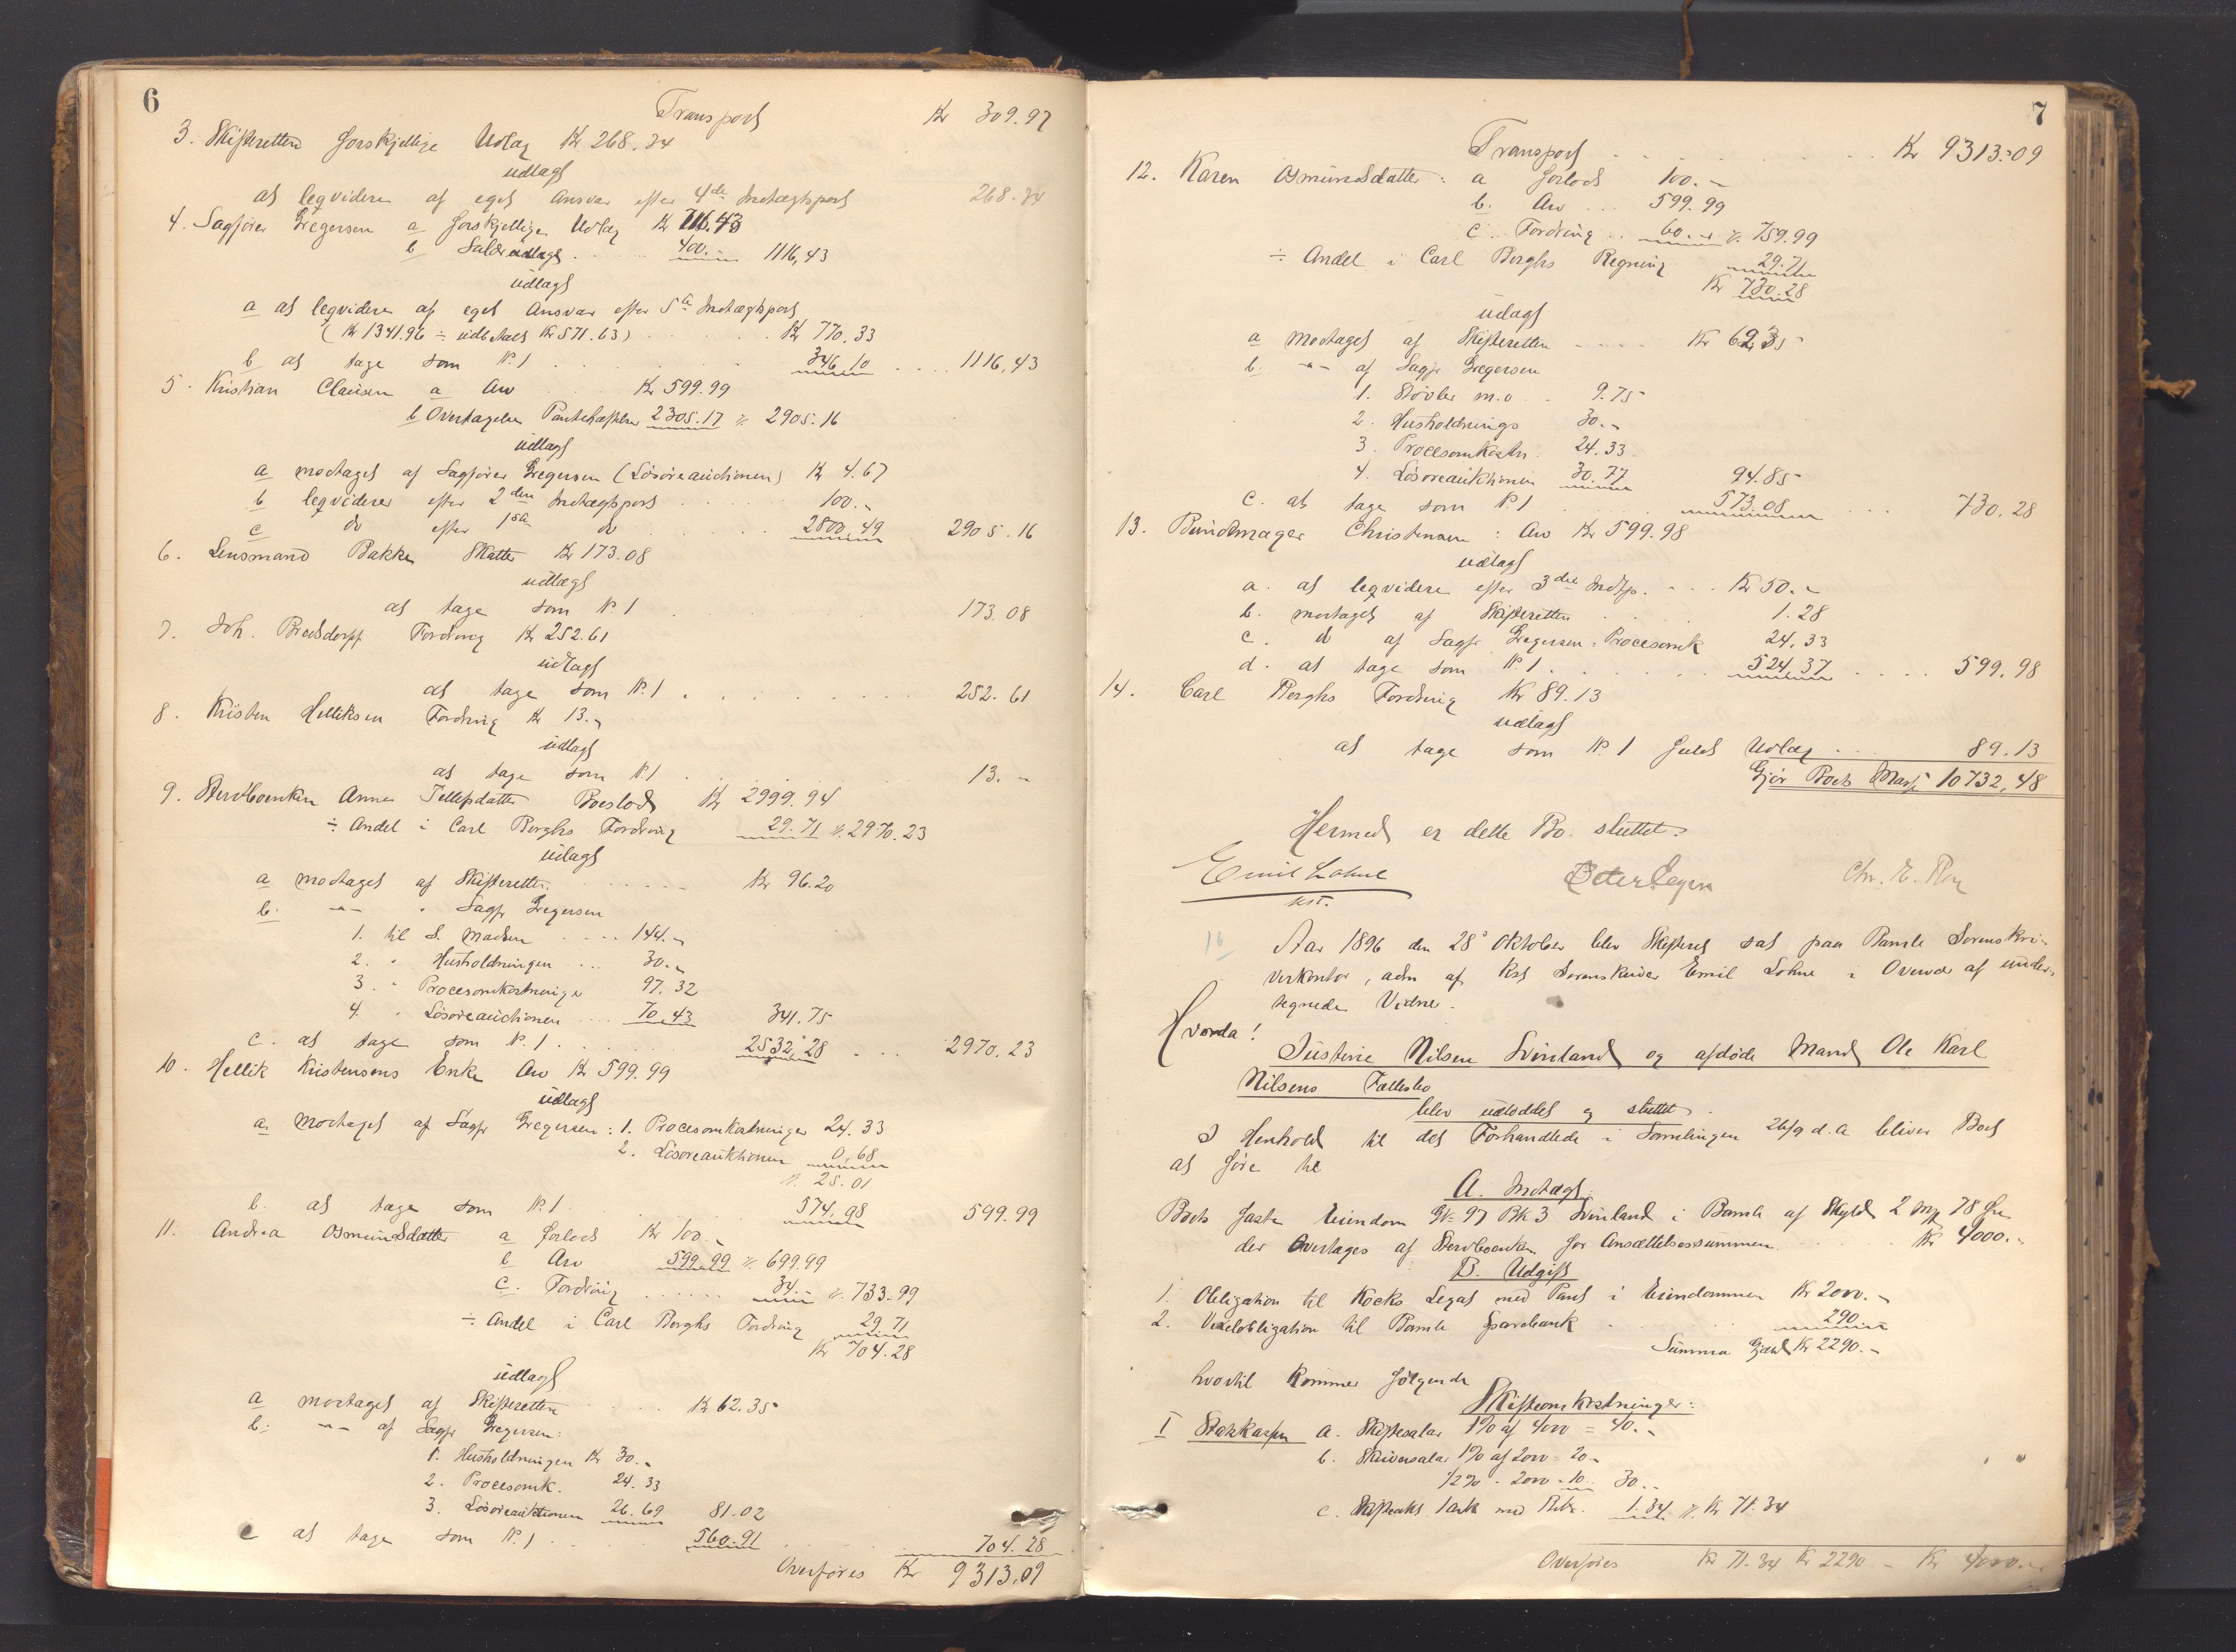 6
Transport Kr 309.97
3. Skifteretten forskjellige Udlæg Kr 268.34
udlagt
at leqvidere af eget Ansvar efter 4de Indtægtspost 268.34
4. Sagfører Gregersen a forskjellige Udlæg Kr 716.43
b Salær udlagt 400.- 1116,43
udlagt
a at leqvidere af eget Ansvar efter 5te Indtægtspost
(Kr 1341.96 ÷ udbetalt Kr 571.63) Kr 770.33
b at tage som No. 1 346.10 1116,43
5. Kristian Clausen a Arv Kr 599.99
b Overtagelse Pantehæftelser 2305.17 2905.16
udlagt
a modtaget af Sagfører Gregersen (Løsøreauctionen) Kr 4.67
b leqviderer efter 2den Indtægtspost 100.-
c do efter 1ste do 2800.49 2905.16
6. Lensmand Bakke Skatter Kr 173.08
udlægt
at tage som No. 1 173.08
7. Joh. Bredsdorff Fordring Kr 252.61
udlagt
at tage som No. 1 252.61
8. Kristen Helliksen Fordring Kr 13.-
udlagt
at tage som No. 1 13.-
9. Stervboenken Anne Tellefsdatter Boeslod Kr 2999.94
÷ Andel i Carl Borghs Fordring 29.71 2970.23
udlagt
a modtaget af Skifteretten Kr 96.20
b. -"- " Sagfr Gregersen
1. til S. Madsen 144.-
2. " Husholdningen 30.-
3. " Procesomkostninger 97.32
4. " Løsøreauctionen 70.43 341.75
c. at tage som No. 1 2532.28 2970.23
10. Hellik Kristensens Enke Arv Kr 599.99
udlagt
a. Modtaget af Sagfr Gregersen: 1. Procesomkostninger 24.33
2. Løsøreauktionen 0.68
25.01
b. at tage som No. 1 574.98 599.99
11. Andrea Osmundsdatter a Forlods Kr 100.-
b Arv 599.99 699.99
c. Fordring 34.- 733.99
÷ Andel i Carl Borghs Fordring 29.71
Kr 704.28
udlagt
a modtaget af Skifteretten Kr 62.35
b. -"- af Sagfr Gregersen:
1. Husholdningen Kr 30.-
2. Procesomk. 24.33
3. Løsøreauktionen 26.69 81.02
c at tage som No. 1 560.91 704.28
Overføres Kr 9313,09
7
Transport Kr 9313.09
12. Karen Osmundsdatter: a Forlods 100.-
b. Arv 599.99
c. Fordring 60.- 759.99
÷ Andel i Carl Borghs Regning 29.71
Kr 730.28
udlagt
a Modtaget af Skifteretten Kr 62.35
b. -"- af Sagfr Gregersen
1. Støvler m.v. 9.75
2. Husholdnings 30.-
3. Procesomkostn. 24.33
4. Løsøreauktionen 30.77 94.85
c. at tage som No. 1 573.08 730.28
13. Buntmager Christensen: Arv Kr 599.98
udlagt
a. at leqvidere efter 3die Indtp. Kr 50.-
b. modtaget af Skifteretten 1.28
c. do af Sagfr Gregersen: Procesomk 24.33
d. at tage som No. 1 524.37 599.98
14. Carl Borghs Fordring Kr 89.13
udlagt
at tage som No. 1 fuldt Udlæg 89.13
Gjør Boets Masse 10732,48
Hermed er dette Bo. sluttet.
Emil Lohne
kst.
Chr. E.
16
Aar 1896 den 28de Oktober blev Skifteret sat paa Bamle Sorenskri-
verkontor, adm af kst Sorenskriver Emil Lohne i Overvær af under-
tegnede Vidne.
Hvorda!
Justine Nilsen Svinland og afdøde Mand Ole Karl
Nilsens Fællesbo
blev udloddet og sluttet.
I Henhold til det Forhandlede i Samlingen 26/9 d.A. bliver Boet
atføre til
A. Indtægt.
Boets faste Eiendom GN 97 BN 3 Svinland i Bamle af Skyld 2 Mk 78 Øre
der Overtages af Stervboenken for Ansættelsessummen Kr 4000.-
B. Udgift
1. Obligation til Kocks Legat med Pant i Eiendommen Kr 2000.-
2. Vexelobligation til Bamle Sparebank 290.-
Summa Gjæld Kr 2290.-
hvortil kommer følgende
Skifteomkostninger:
I Statskassen a. Skiftesalær 1% af 4000 = 40.-
b. Skriversalær 1% af 2000 = 20.-
1/2% - 2000 = 10.- 30.-
c. Skifteakt 1 ark med Beb. 1.34 Kr 71.34
Overføres Kr 71.34 Kr 2290 - Kr 4000.-